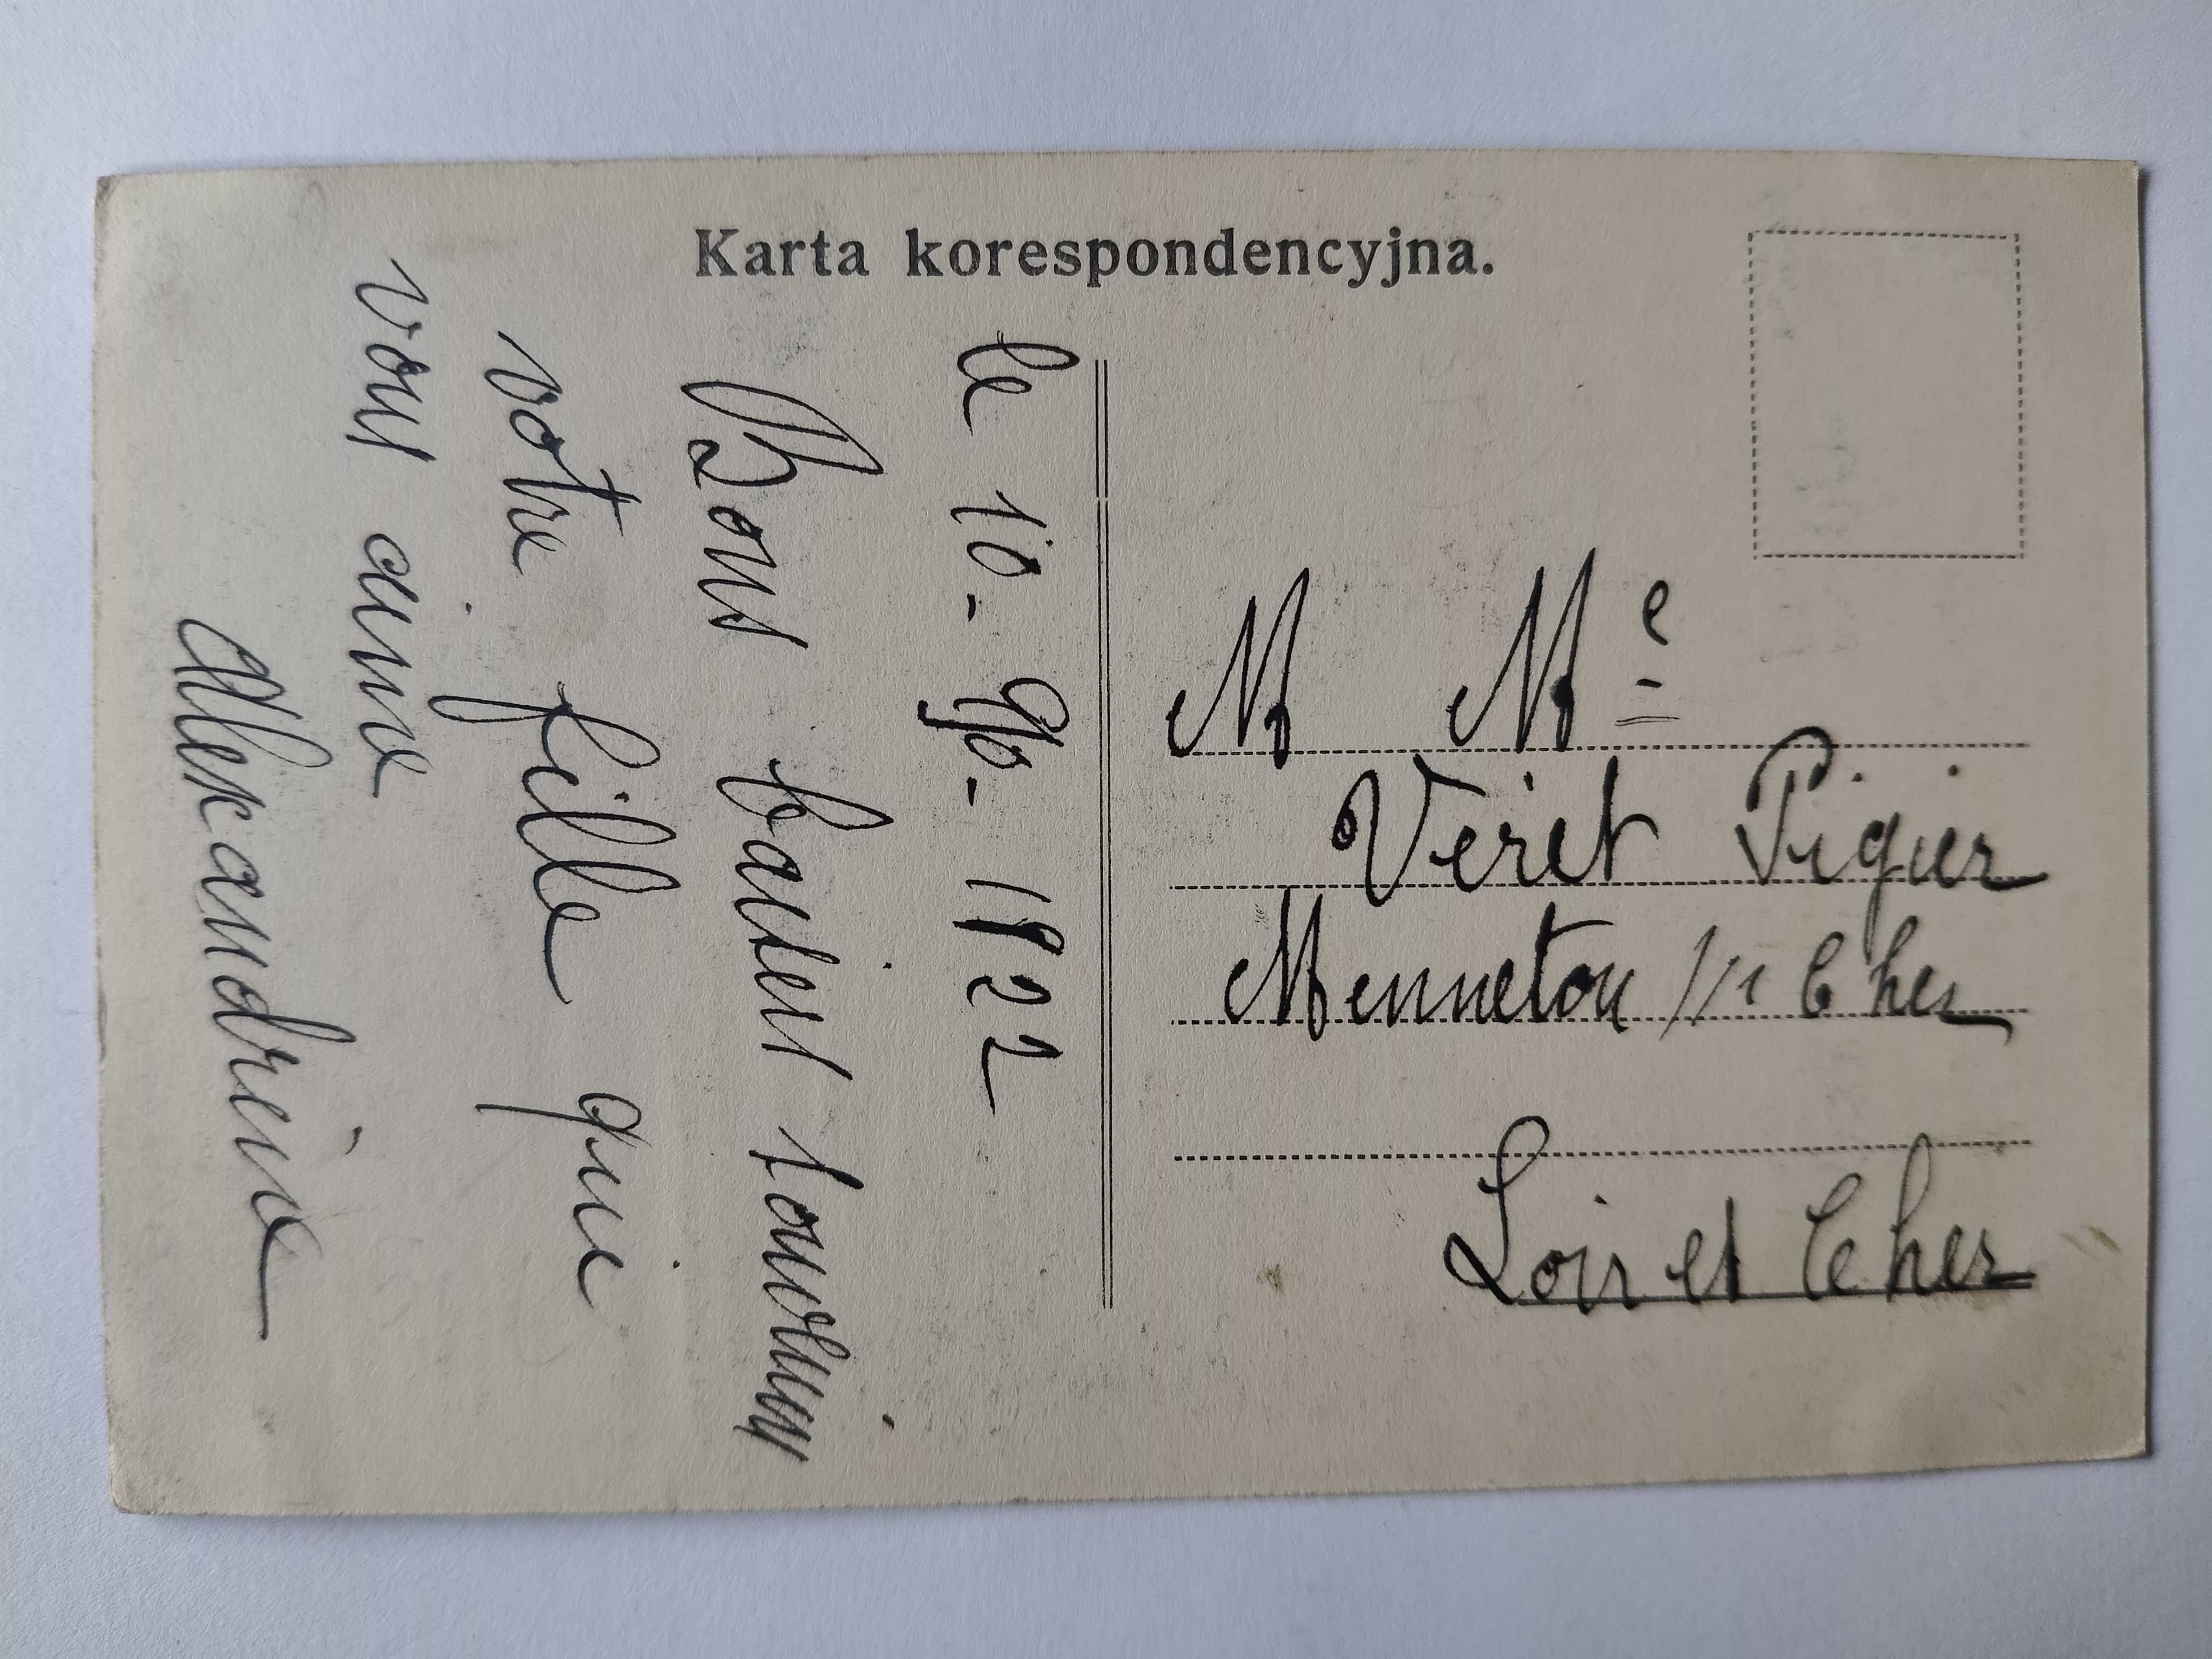 Karta korespondencyjna.
le 10 - 9b - 1922
Bons baisers souvenirs
votre fille que
vous aime
Alexandrine
M Me
Veret Pigier
Mennetou s/r Cher
Loir et Cher